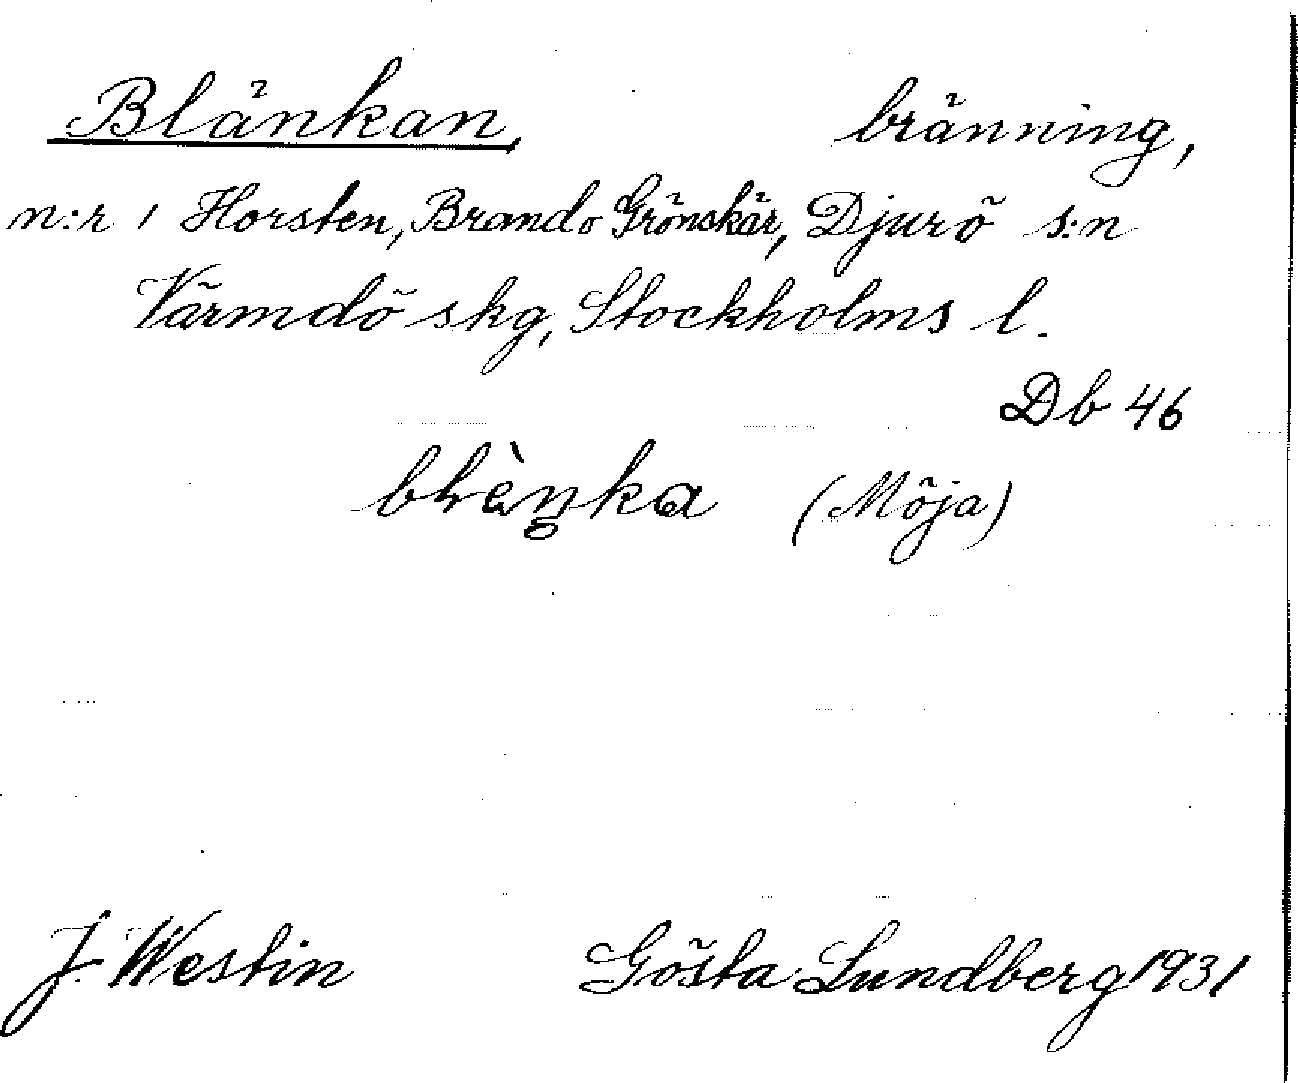 Blänkan, bränning,
n:r 1 Horsten, Brando Grönskär, Djurö s:n
Värmdö skg, Stockholms l.
Db 46
(Möja)
J. Westin Gösta Lundberg 1931